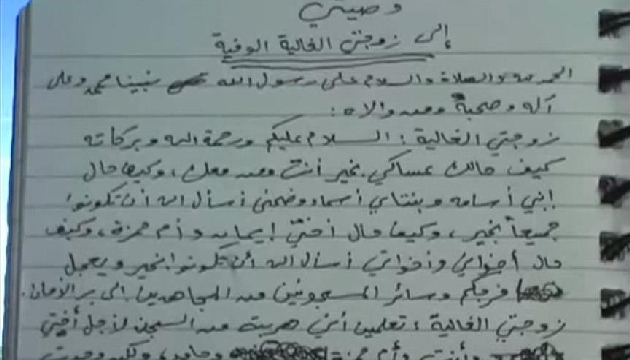 وصيتي
إلى زوجتي الغالية الوفية
الحمد لله والصلاة والسلام على رسول الله نبينا محمد وعلى
آله وصحبه ومن والاه :
زوجتي الغالية : السلام عليكم ورحمة الله وبركاته
كيف حالك عساكي بخير أنت ومن معك ، وكيف حال
إبني أسامه وبنتاي أسماء وضحى أسأل الله أن تكونوا
جميعاً بخير ، وكيف حال أختي إيمان وأم حمزة ، وكيف
حال أخواتي أسأل الله أن تكونوا بخير ويعجل
فرجكم وسائر المسجونين من المجاهدين إلى بر الأمان .
زوجتي الغالية : تعلمين أنني هربت من السجن لأجل أختي